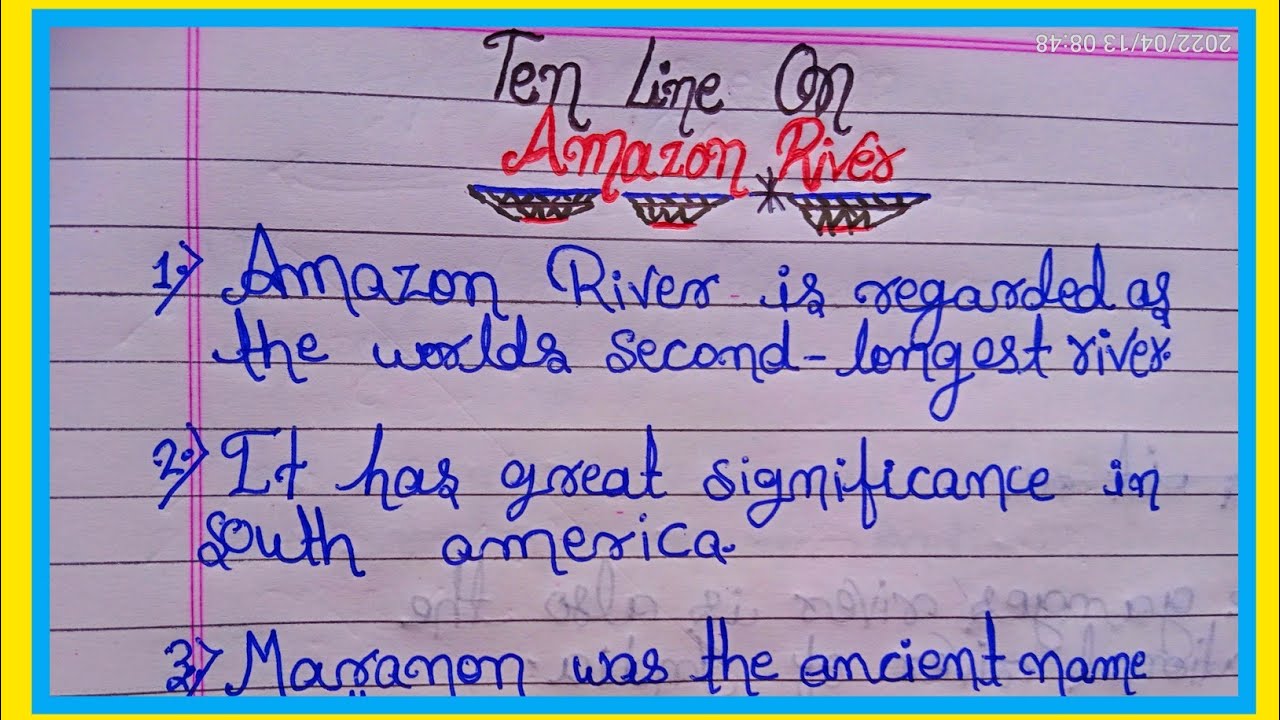 2022/04/13 08:48
Ten Line On
Amazon River
1) Amazon River is regarded as
the worlds second-longest river.
2) It has great significance in
south america.
3) Maranon was the ancient name